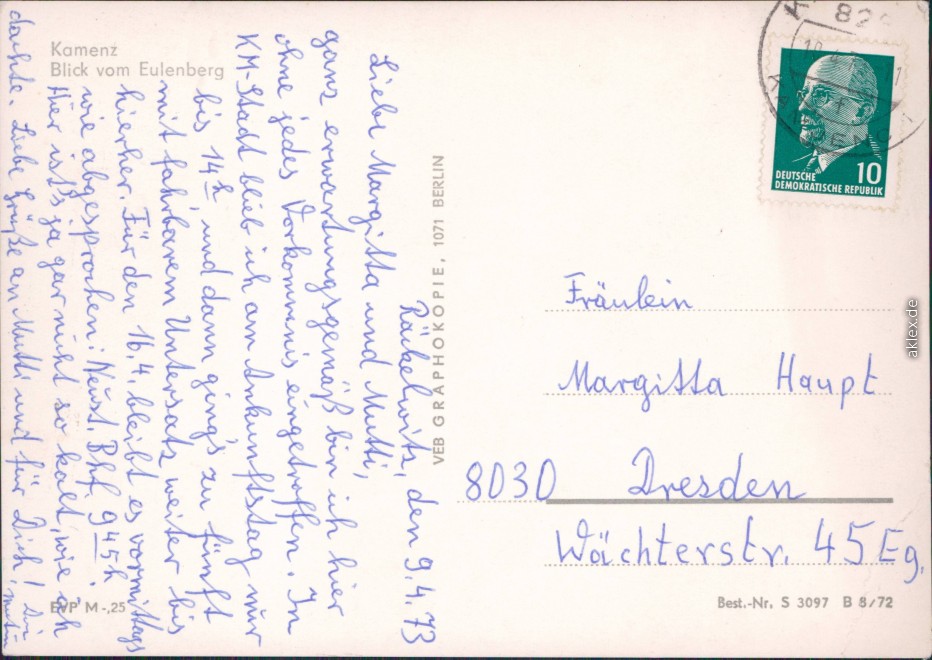 Kamenz
Blick vom Eulenberg
Räckelwitz, den 9.4.73
Liebe Margitta und Mutti,
ganz erwartungsgemäß bin ich hier
ohne jedes Vorkommnis eingetroffen. In
KM-Stadt blieb ich am Ankunftstag nur
bis 14h und dann ging's zu fünft
mit fahrbarem Untersatz weiter bis
hierher. Für den 16.4. bleibt es vormittags
wie abgesprochen: Neust. Bhf. 945h.
Hier ist's ja gar nicht so kalt, wie ich
dachte. Liebe Grüße an Mutti und für Dich!
VEB GRAPHOKOPIE, 1071 BERLIN
EVP M -,25
DEUTSCHE
DEMOKRATISCHE REPUBLIK
10
Fräulein
Margitta Haupt
8030 Dresden
Wächterstr. 45 Eg.
Best.-Nr. S 3097 B 8/72
aklex.de